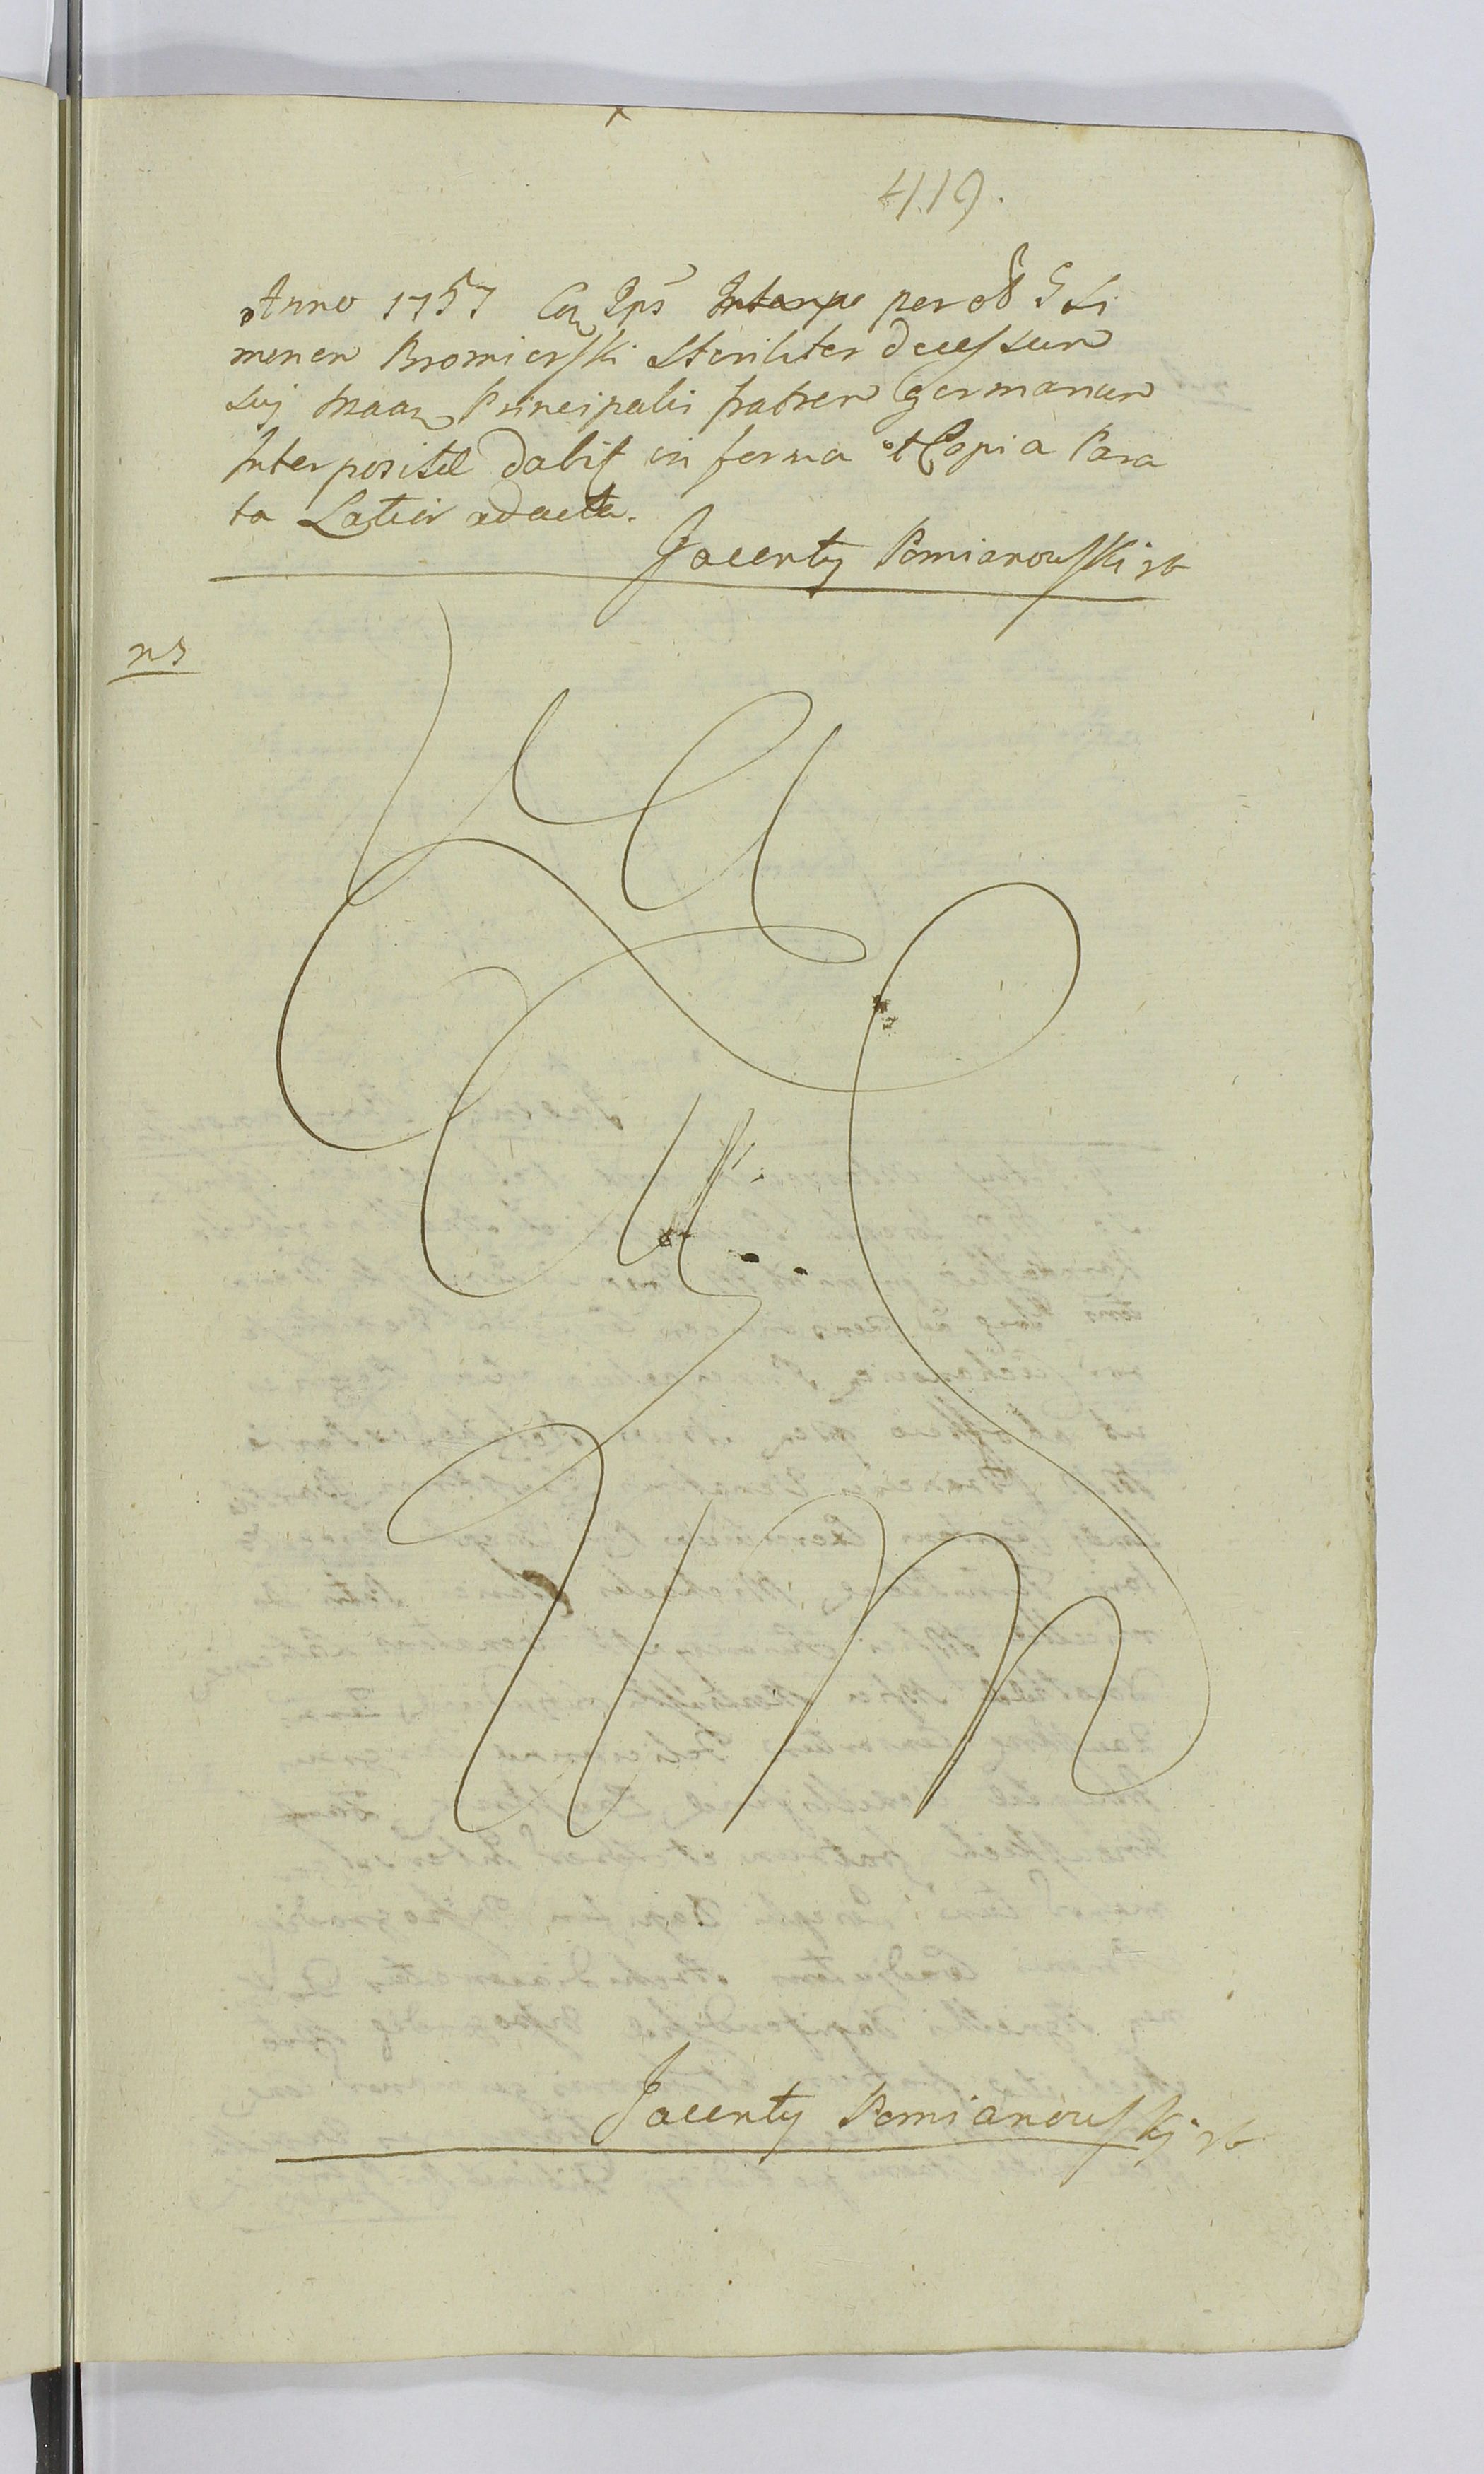 419.
Anno 1757 Coq Ips per S Si
monen Bromierski Steriliter decessun
suj Principalis fratren Germanun
Interposit dabit in forma et Copia Para
ta Latior ad acta.
Jacenty Pomianowski
ns
Jacenty Pomianowskj